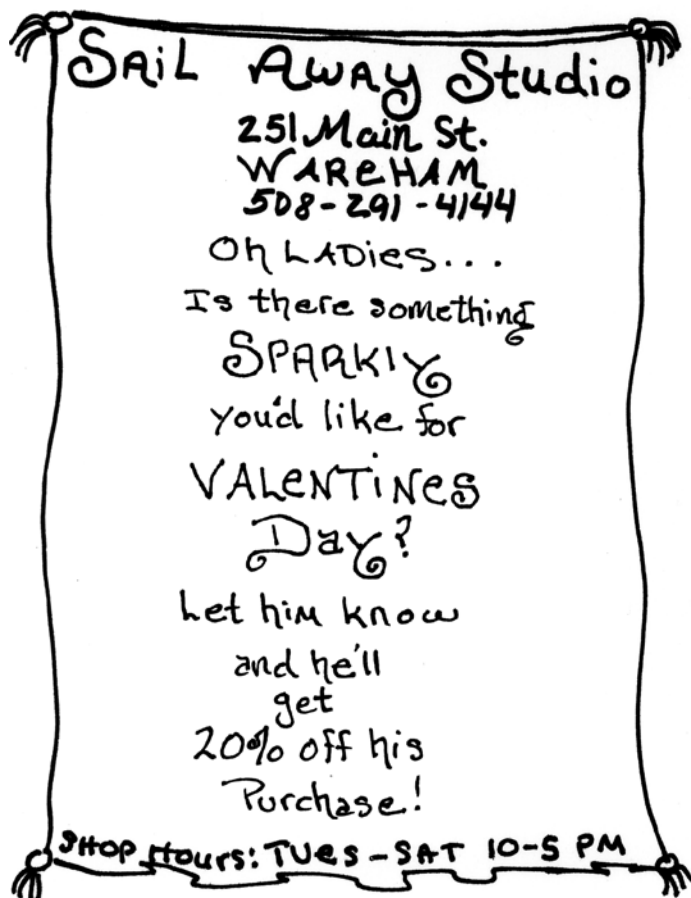 SAiL AWAy Studio
251 Main St.
WAReHAM
508-291-4144
Oh LADies...
Is there something
SPARKlY
you'd like for
VALeNTiNes
Day?
Let hiM know
and he'll
get
20% off his
Purchase!
SHOP Hours: TUes - SAT 10-5 PM